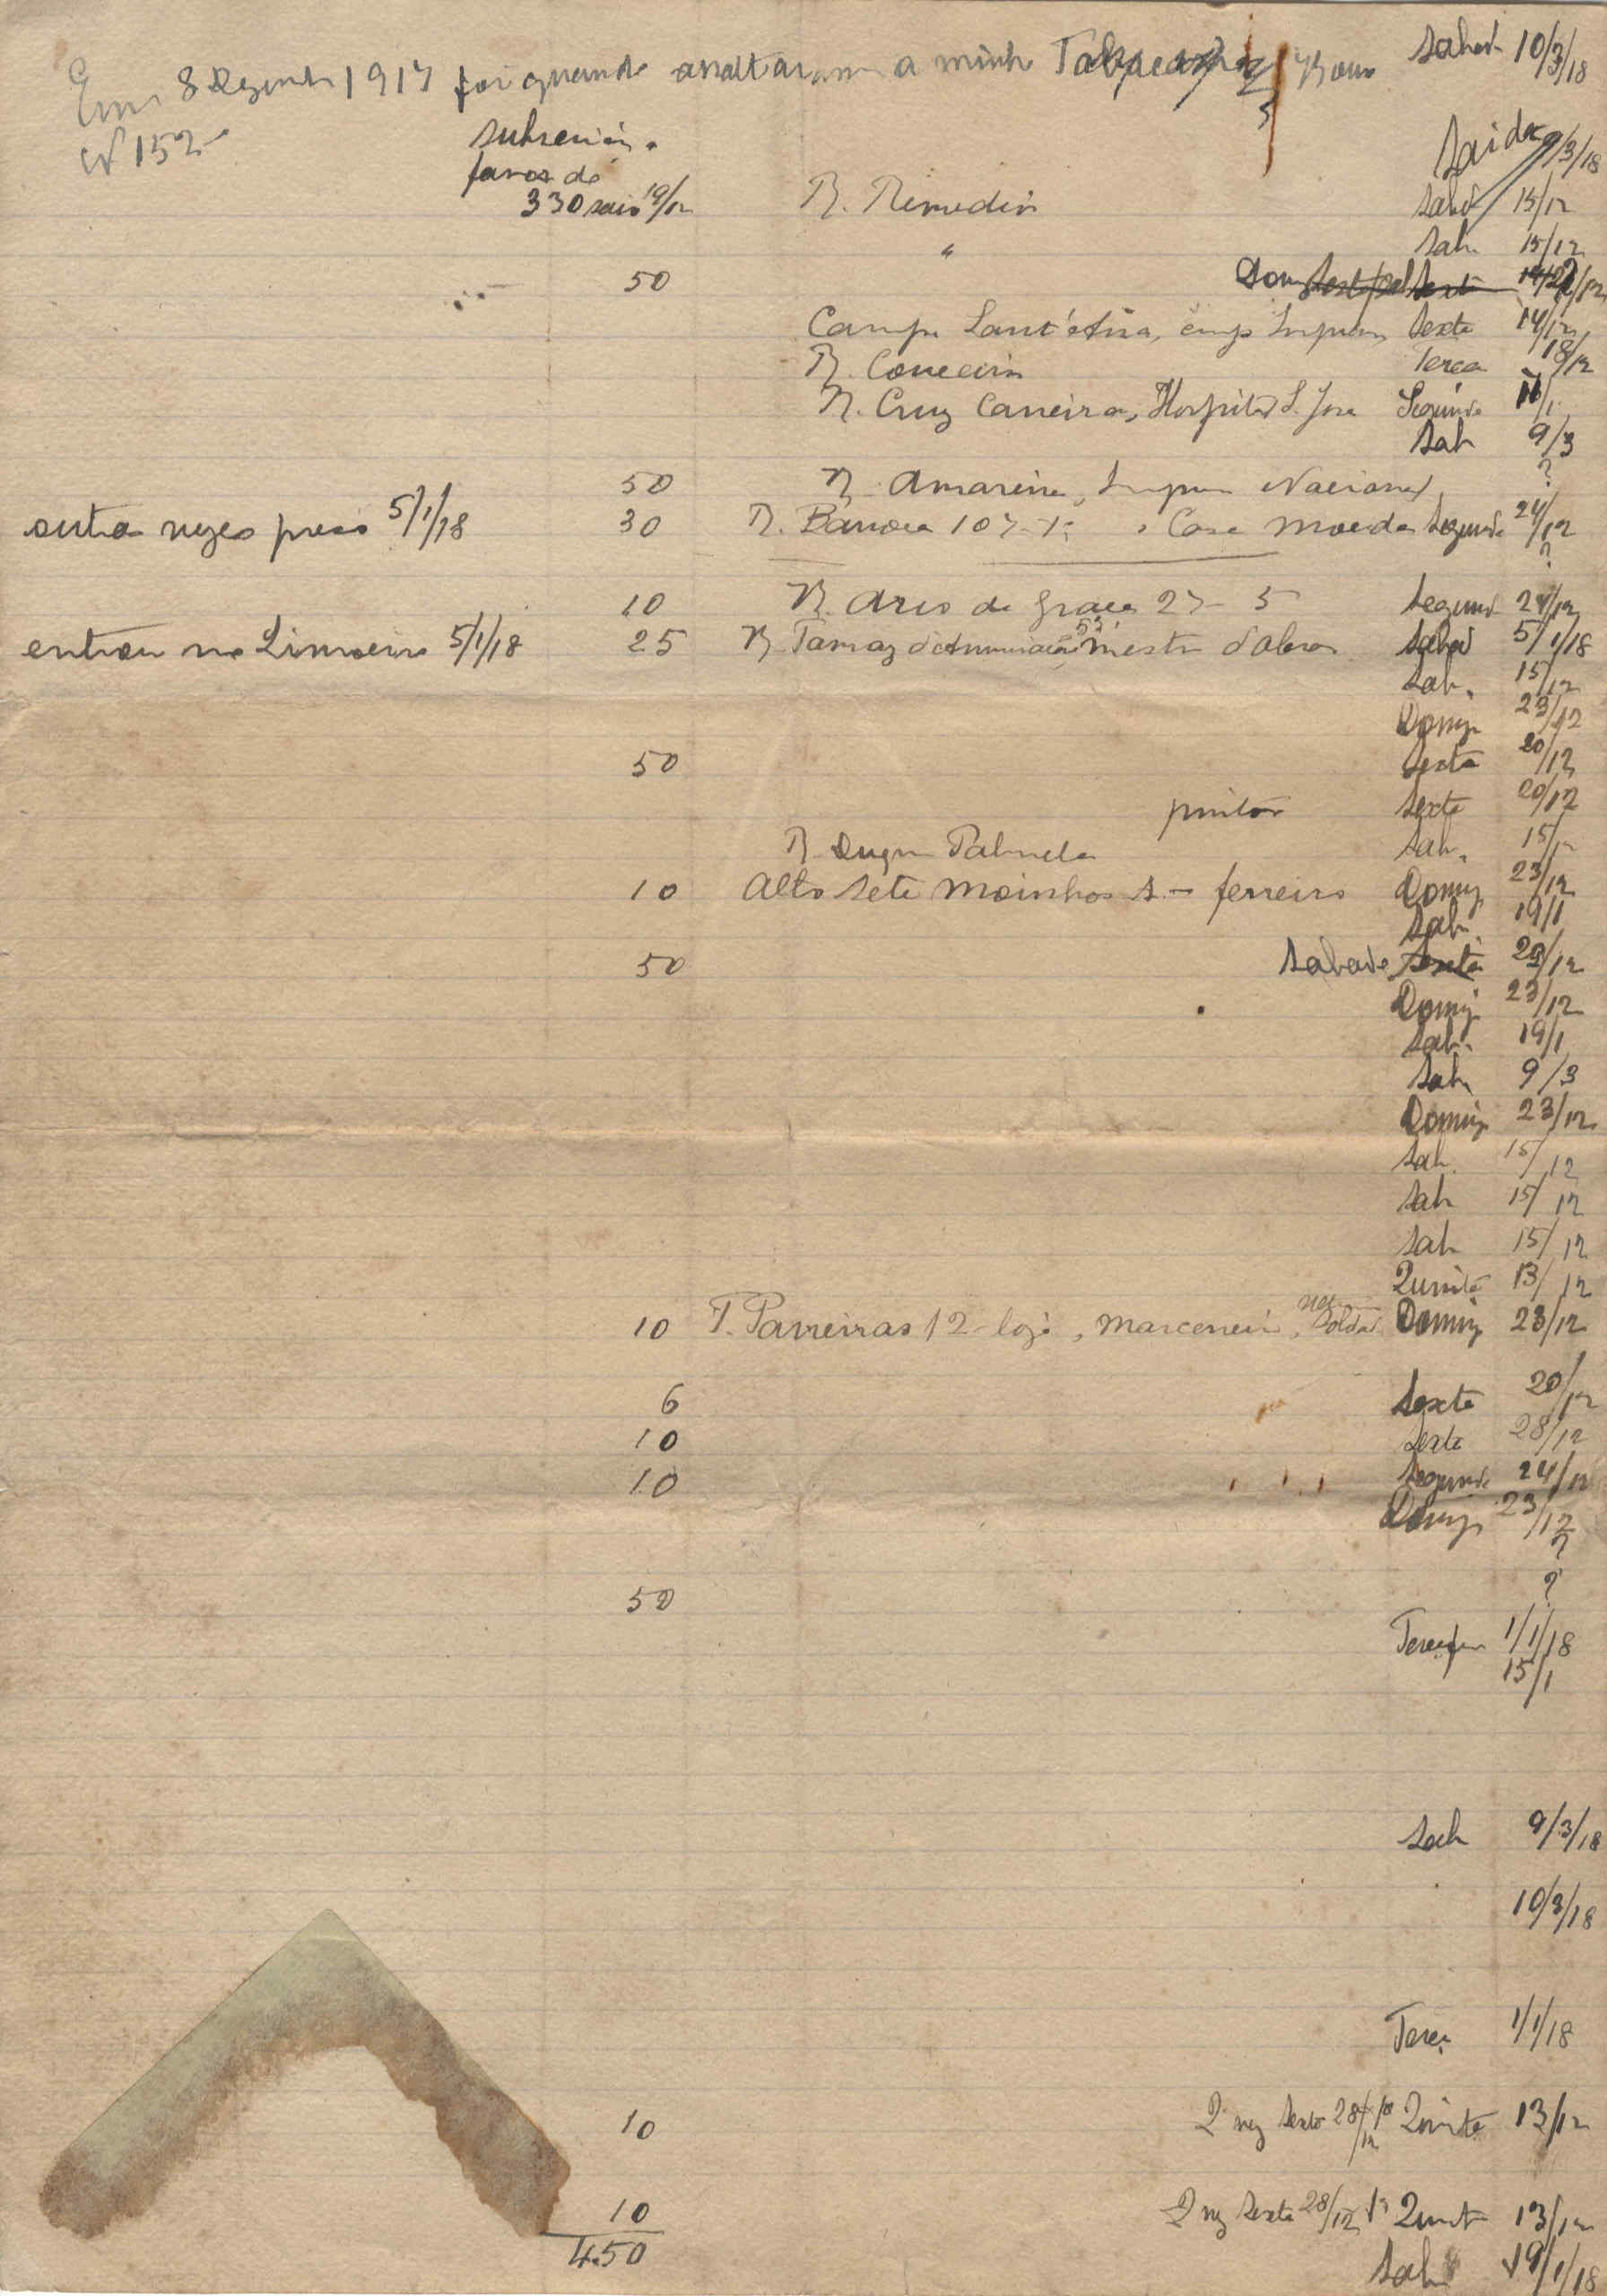 Sabad 10/3/18
Em 8 Dezemb 1917 foi quando assaltaram a minha Tabacaria
Nº 152
Saida 9/3/18
subscrição
favor de
330 19/12 R. Remedios Sab 15/12
" Sab. 15/12
50 Dom
Campo Sant'Ana, Sexta 14/12
R. Conceição Terça 18/12
R. Cruz Carreira, Hospital S. Jose Segunda
Sab 9/3
50 R. Amoreira, Nacional ?
outra vez preso 5/1/18 30 R. Casa Moeda Segunda 24/12
?
10 R. Arco da Graça 27-5 Segund 24/12
entrou no Limoeiro 5/1/18 25 R. Tomaz d'Anunciação 53 mestre d'obras Sabad 5/1/18
Sab. 15/12
Domg 23/12
50 Sexta 20/12
pintor Sexta 20/12
R. Duque Palmela Sab. 15/12
10 Alto Sete Moinhos ferreiro Domg 23/12
Sab. 19/1
50 Sabado Sexta 29/12
Domg 23/12
Sab. 19/1
Sab. 9/3
Doming 23/12
Sab. 15/12
Sab 15/12
Sab 15/12
Quinta 13/12
10 T. Parreiras 12-loja, marceneiro, Doming 23/12
6 Sexta 20/12
10 Sexta 28/12
10 Segunda 24/12
Domg 23/12
?
50 ?
Terça 1/1/18
15/1
Sab 9/3/18
10/3/18
Terça 1/1/18
10 2 vez Sexta 28/12 1ª Quinta 13/12
10 2 vez Sexta 28/12 1ª Quint 13/12
450
Sab 19/1/18